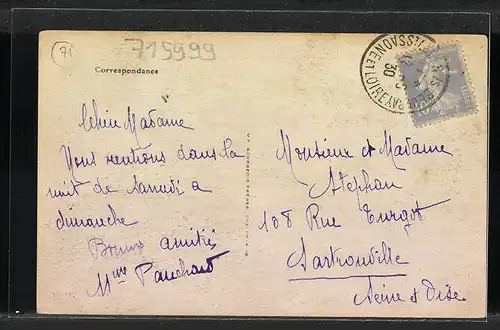 71
715999
Correspondance
Chère Madame
Nous rentrons dans la
nuit de Samedi a
dimanche
Bonnes amitiés
Mme Panchard
Monsieur et Madame
Stephan
108 Rue Turgot
Sartrouville
Seine et Oise
SAONE ET LOIRE
30